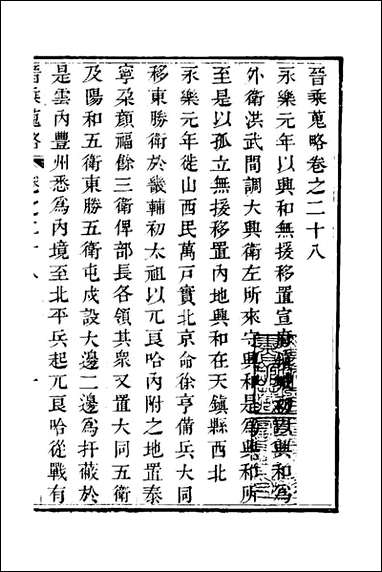 晉乘蒐略卷之二十八
永樂元年以興和無援移置宣府鎮城初以興和爲
外衛洪武間調大興衛左所來守興和是爲興和所
至是以孤立無援移置內地興和在天鎮縣西北
永樂元年徙山西民萬戶實北京命徐亨備兵大同
移東勝衛於畿輔初太祖以兀良哈內附之地置泰
寧朶顏福餘三衛俾部長各領其衆又置大同五衛
及陽和五衛東勝五衛屯戍設大邊二邊爲扞蔽於
是雲內豐州悉爲內境至北平兵起兀良哈從戰有
晉乘蒐略 卷之二十八 一